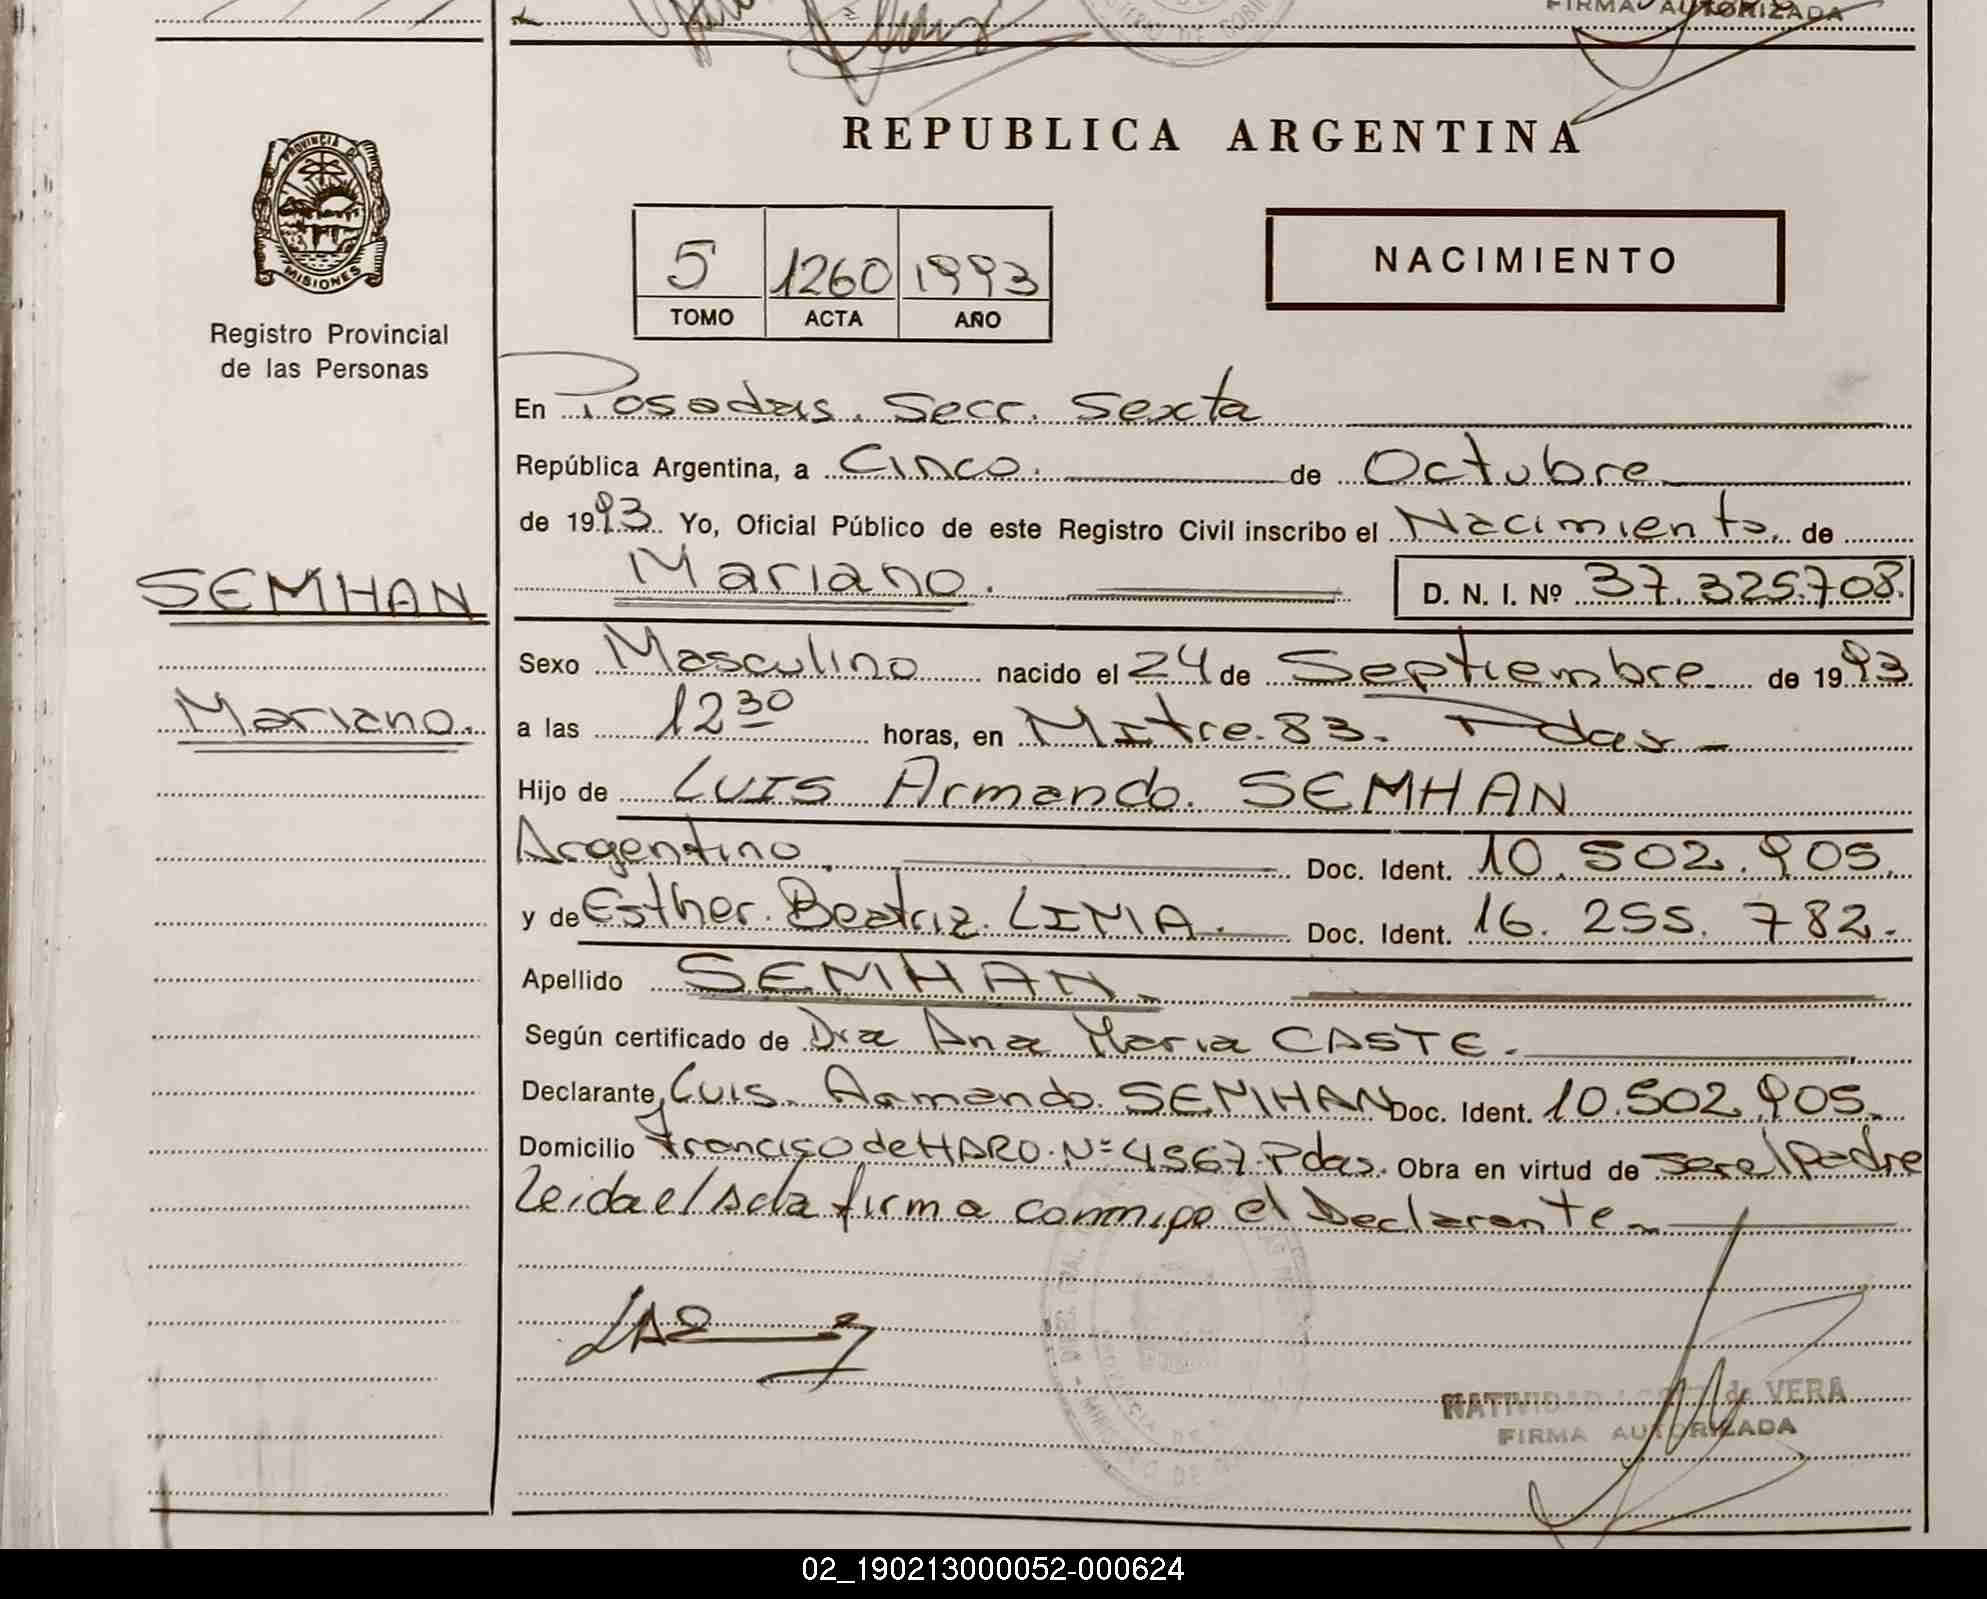 FIRMA AUTORIZADA
REPUBLICA ARGENTINA
PROVINCIA DE
MISIONES
Registro Provincial
de las Personas
5 1260 1993
TOMO ACTA AÑO
NACIMIENTO
En Posadas. Secc. Sexta
República Argentina, a Cinco. de Octubre
de 1993 Yo, Oficial Público de este Registro Civil inscribo el Nacimiento de
Mariano. D. N. I. Nº 37.325.708.
SEMHAN
Mariano.
Sexo Masculino nacido el 24 de Septiembre de 1993
a las 12 30 horas, en Mitre. 83. Pdas
Hijo de LUIS Armando. SEMHAN
Argentino. Doc. Ident. 10.502.905.
y de Esther. Beatriz. LIMA. Doc. Ident. 16. 255. 782.
Apellido SEMHAN.
Según certificado de Dra Ana Maria CASTE.
Declarante Luis. Armando. SEMHAN Doc. Ident. 10.502.905.
Domicilio Francisco de HARO. Nº 4567. Pdas. Obra en virtud de ser el Padre
Leida el Acta firma conmigo el Declarante
NATIVIDAD de VERA
FIRMA AUTORIZADA
02_190213000052-000624